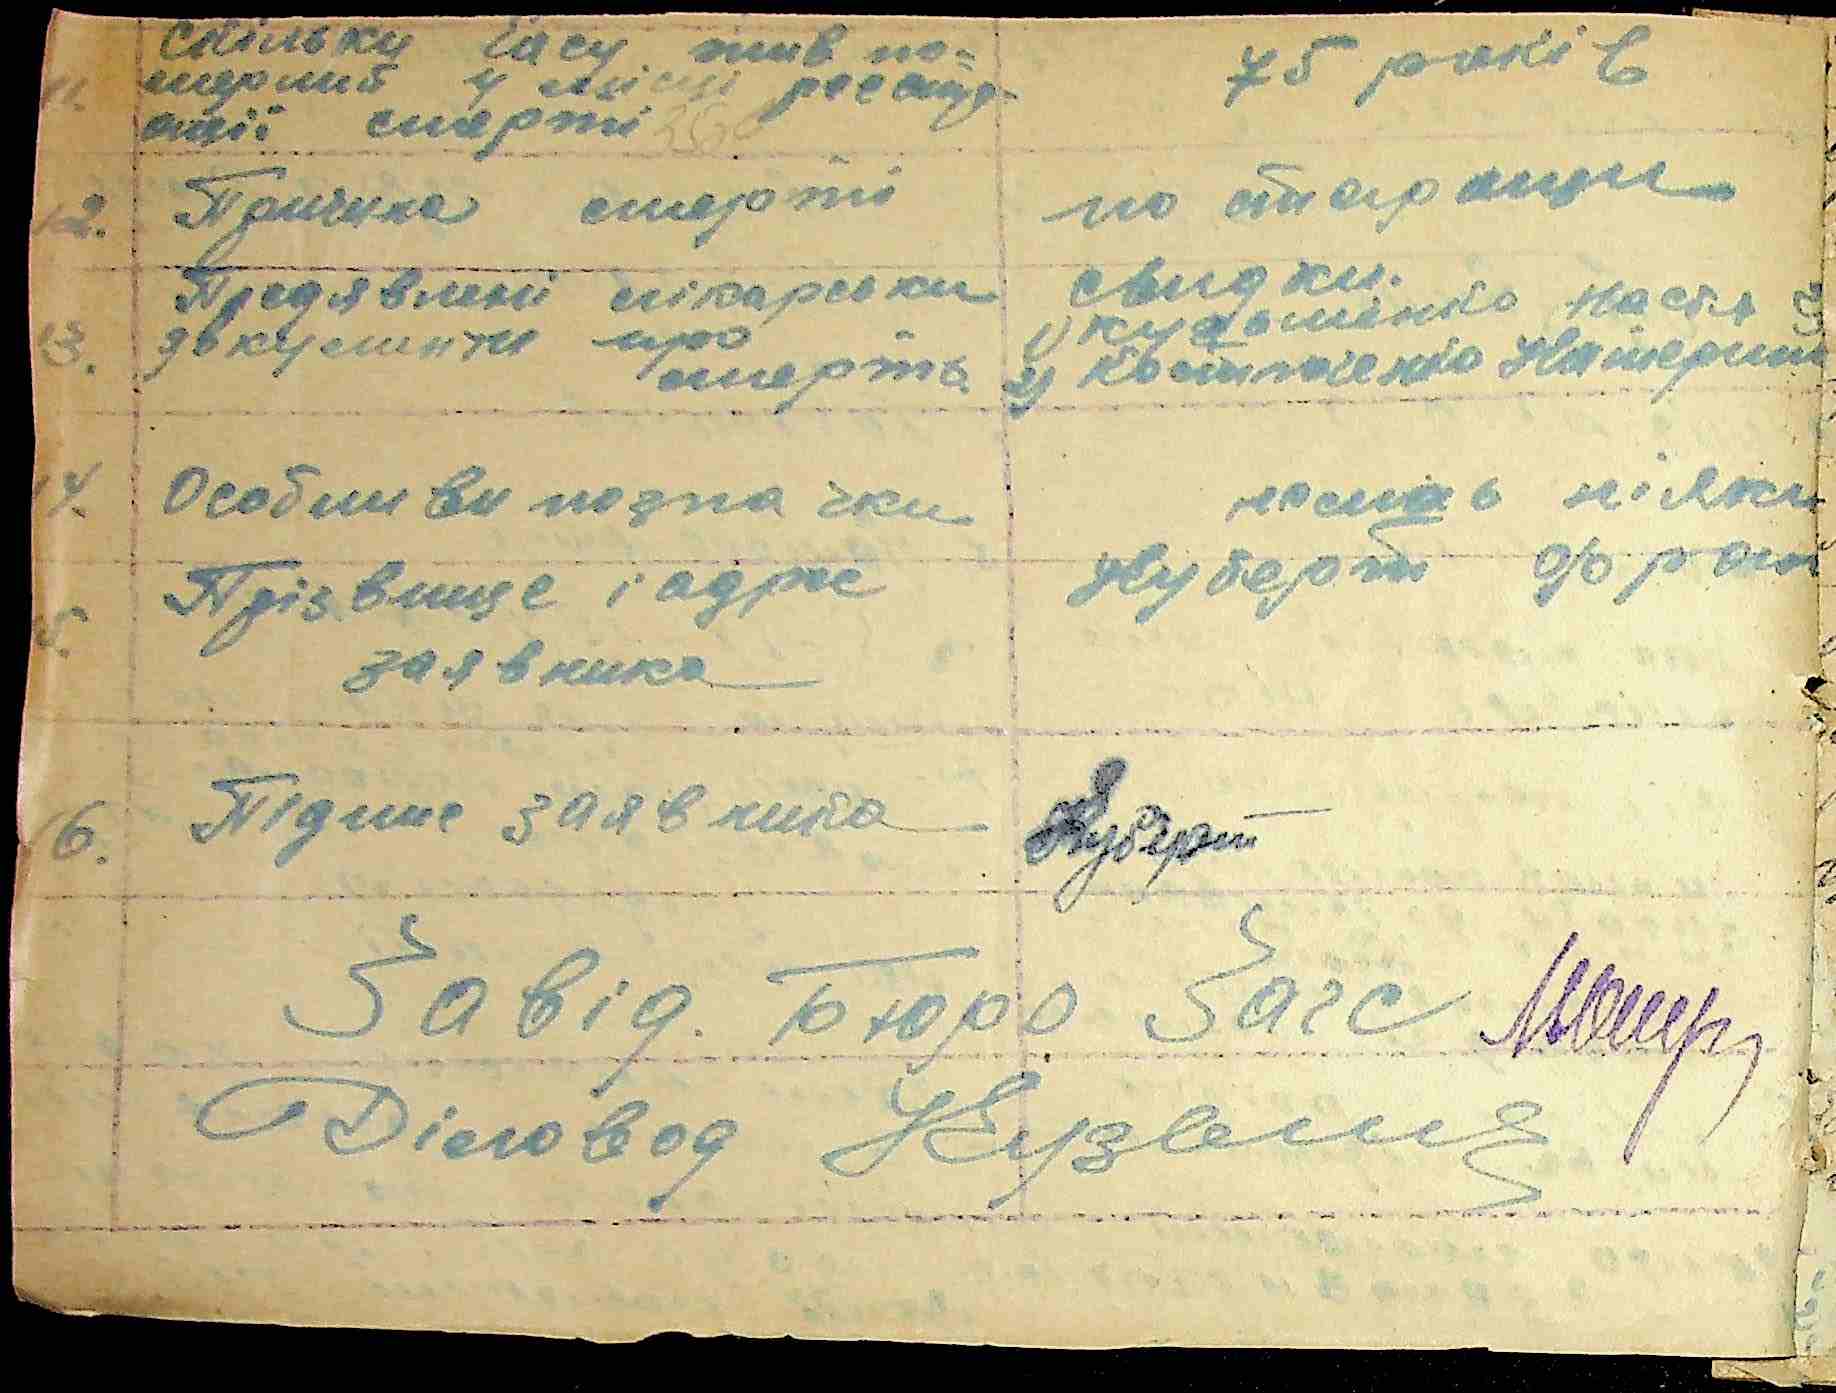 11. Скільки часу жив по=
мерлий у місці реєстр-
ації смерті
75 років
12. Причина смерті
по старости
13. Предявлені лікарськи
документи про
смерть
свидки.
1) Кузьменко Настя
2) Костенко Катерина
14. Особливи позначки
немає ніяки
15. Прізвище і адрес
заявника
Куберт Фрон
16. Підпис заявника
Куберт
Завід. Бюро Загс
Діловод